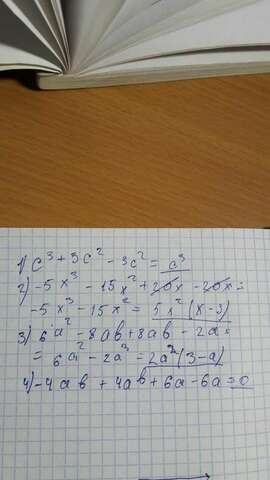 1) c³ + 3c² - 3c² = c³
2) -5x³ - 15x² + 20x - 20x =
-5x³ - 15x² = 5x²(x - 3)
3) 6a² - 8ab + 8ab - 2a³ =
= 6a² - 2a³ = 2a²(3 - a)
4) -4ab + 4ab + 6a - 6a = 0